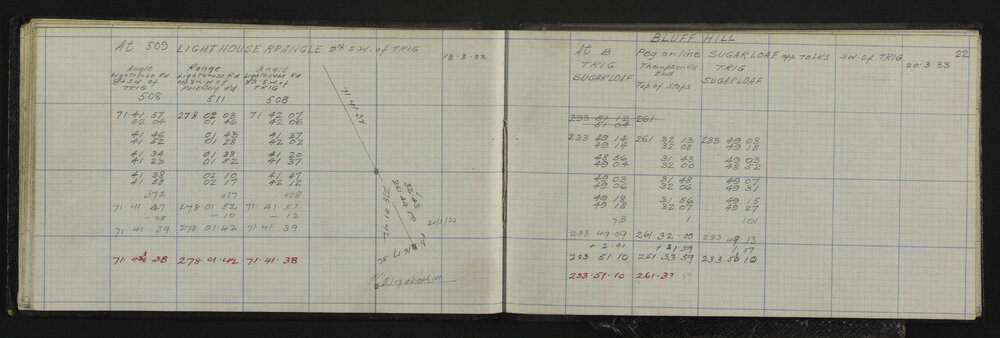 At 509 LIGHTHOUSE RPANGLE 9th S.W. of TRIG
18-3-33
Angle Range Angle
Lighthouse Rd Lighthouse Rd Lighthouse Rd
TRIG Priestly Rd TRIG
508 511 508
71 41 57 278 02 03 71 42 07
42 04 01 46 42 06
41 46 01 43 41 37
41 52 01 28 42 02
41 34 01 38 41 20
41 23 01 52 41 37
41 38 02 10 41 47
41 58 02 17 42 12
372 417 408
71 41 47 278 01 52 71 41 51
-08 -10 -12
71 41 39 278 01 42 71 41 39
71 41 38 278 01 42 71 41 38
71 41 37
278 01 42
Elizabeth Rd
BLUFF HILL
22
At B Peg on line SUGARLOAF opp 70 LKS S.W. of TRIG
20-3-33
TRIG Thompson Rd TRIG
SUGARLOAF End SUGARLOAF
Top of Steps
233 51 13 261
51 04
233 49 14 261 32 13 233 49 08
49 14 32 08 49 18
48 56 31 43 49 03
49 04 32 00 48 52
49 03 31 48 49 07
49 06 32 06 49 31
49 18 31 56 49 15
49 18 32 07 49 27
73 1 101
233 49 09 261 32 00 233 49 13
+ 2.01 + 21 59 1.57
233 51 10 261 33 59 233 51 10
233 51 10 261 33 59